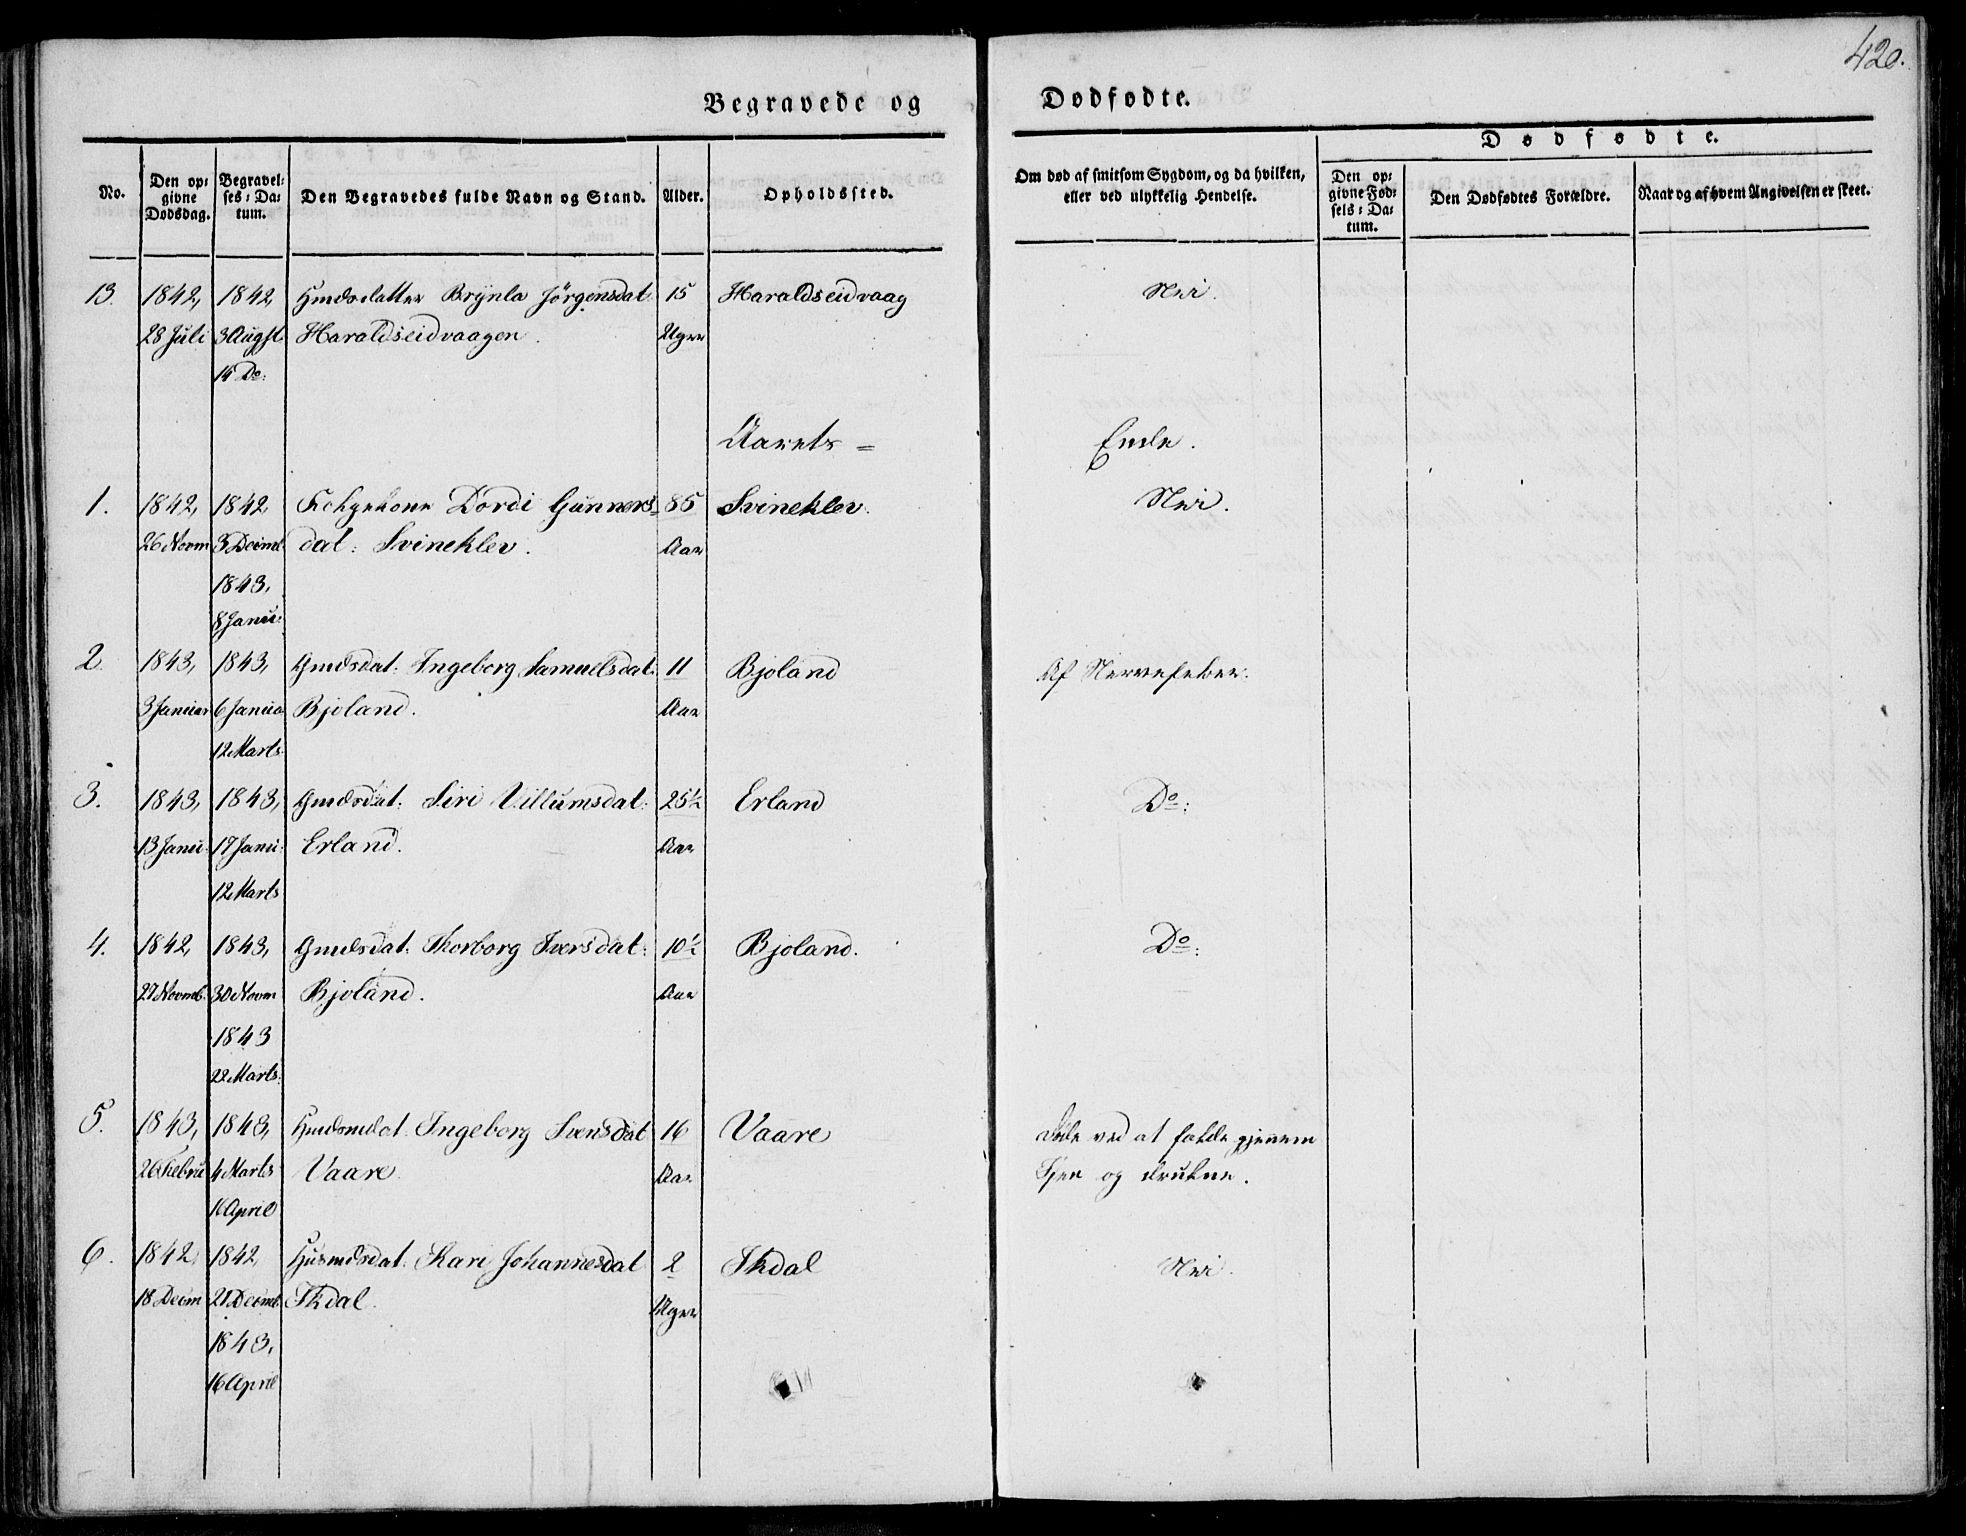 420.
Begravede og Dødfødte.
No.
Den op-
givne
Dødsdag.
Begravel-
ses-Da-
tum.
Den Begravedes fulde Navn og Stand.
Alder.
Opholdssted.
Om død af smitsom Sygdom, og da hvilken,
eller ved ulykkelig Hendelse.
Dødfødte.
Den op-
givne Fød-
sels-Da-
tum.
Den Dødfødtes Forældre.
Naar og af hvem Angivelsen er skeet.
13. 1842, 1842, Brynla Jörgensdat. 15 Haraldseidvaag Nei.
28 Juli 3 Augst Haraldseidvaagen. Uger
14 Do:
Aarets = Ende.
1. 1842, 1842 Dordi Gunners- 85 Svineklev. Nei.
26 Novm 5 Decmb dat: Svineklev. Aar
1843,
8 Janu:
2. 1843, 1843, Gmdsdat: Ingeborg Samuelsdat. 11 Bjoland Af Nervefeber.
3 Januar 6 Janua Bjoland. Aar
12 Marts
3. 1843, 1843, Gmdsdat: Siri Villumsdat: 25½ Erland Do:
13 Janu: 17 Janu: Erland. Aar
12 Marts
4. 1842, 1843, Gmdsdat: Thorborg Iversdat: 10½ Bjoland. Do:
27 Novmb. 30 Novm Bjoland. Aar
1843
22 Marts.
5. 1843, 1843, Ingeborg Svensdat 16 Vaare Døde ved at falde gjenem
26 Febru 4 Marts Vaare. Aar Isen og drukne.
16 April
6. 1842, 1842, Husmdsdat: Kari Johannesdat 2 Skdal Nei.
18 Decm 21 Decmb. Skdal. Uger
1843,
16 April